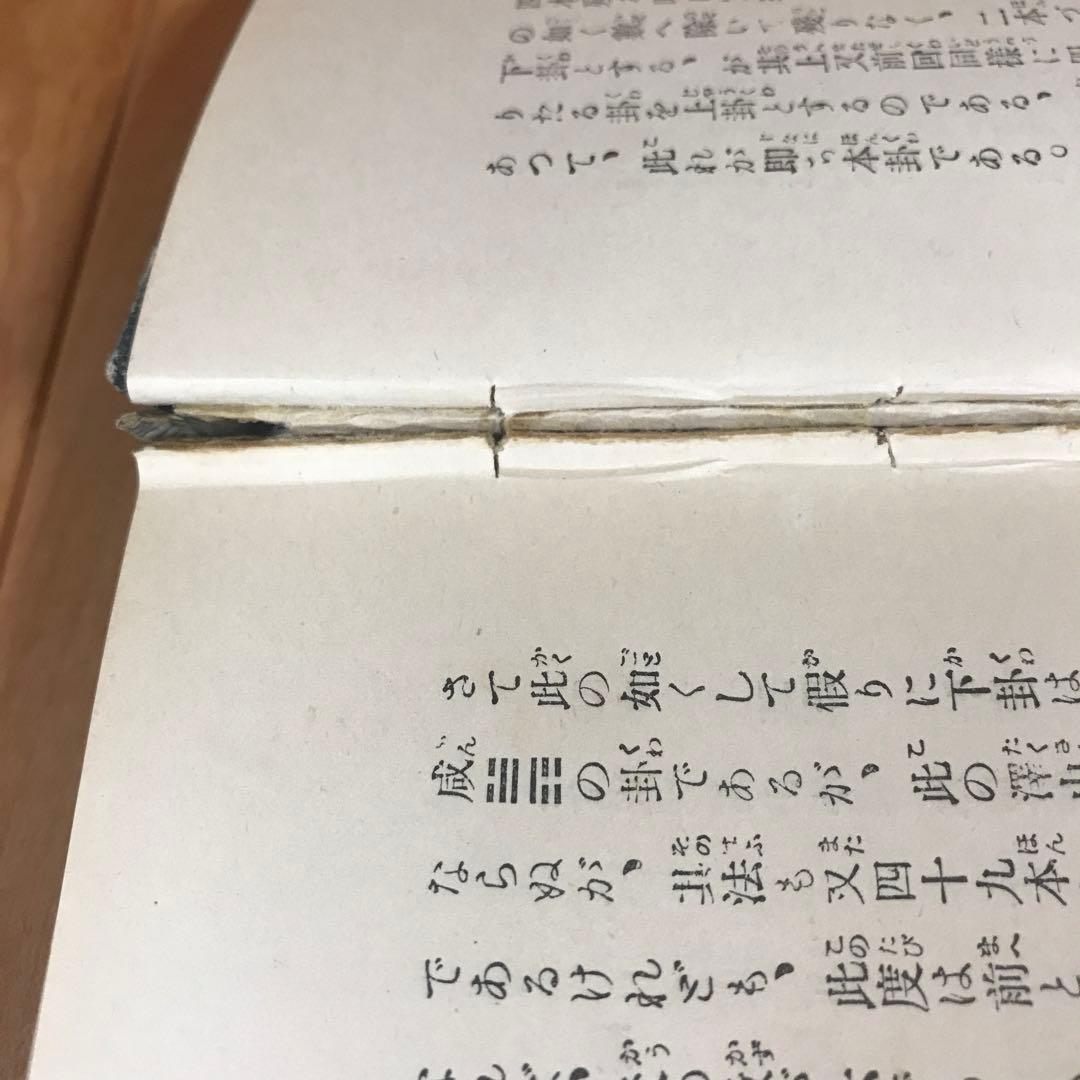 の如く數へ除いて殘りなく、二本づ
下卦とする、が其上又前回同樣に四
りたる卦を上卦とするのである、
あつて、此れが即ち本卦である。
さて此の如くして假りに下卦は
咸☱☶の卦であるが、此の澤山
ならぬが、其法も又四十九本
であるけれども、此度は前と